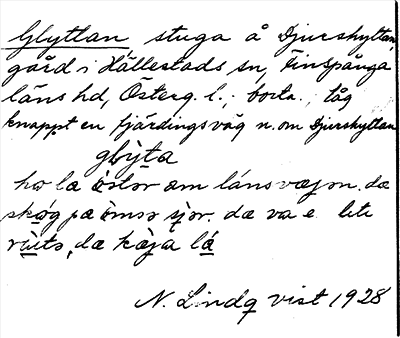 Glyttan, stuga å Djurshyttan,
gård i Hällestads sn, Finspånga
läns hd, Österg. l.; borta; låg
knappt en fjärdingsväg n. om Djurshyttan
glỳta
hɷ la ɷ̀stər ɷm lánsvæjən. dæ
skøg pa ɷ̀msə sjɷr. dæ va e lite
dæ lá
N. Lindq vist 1928